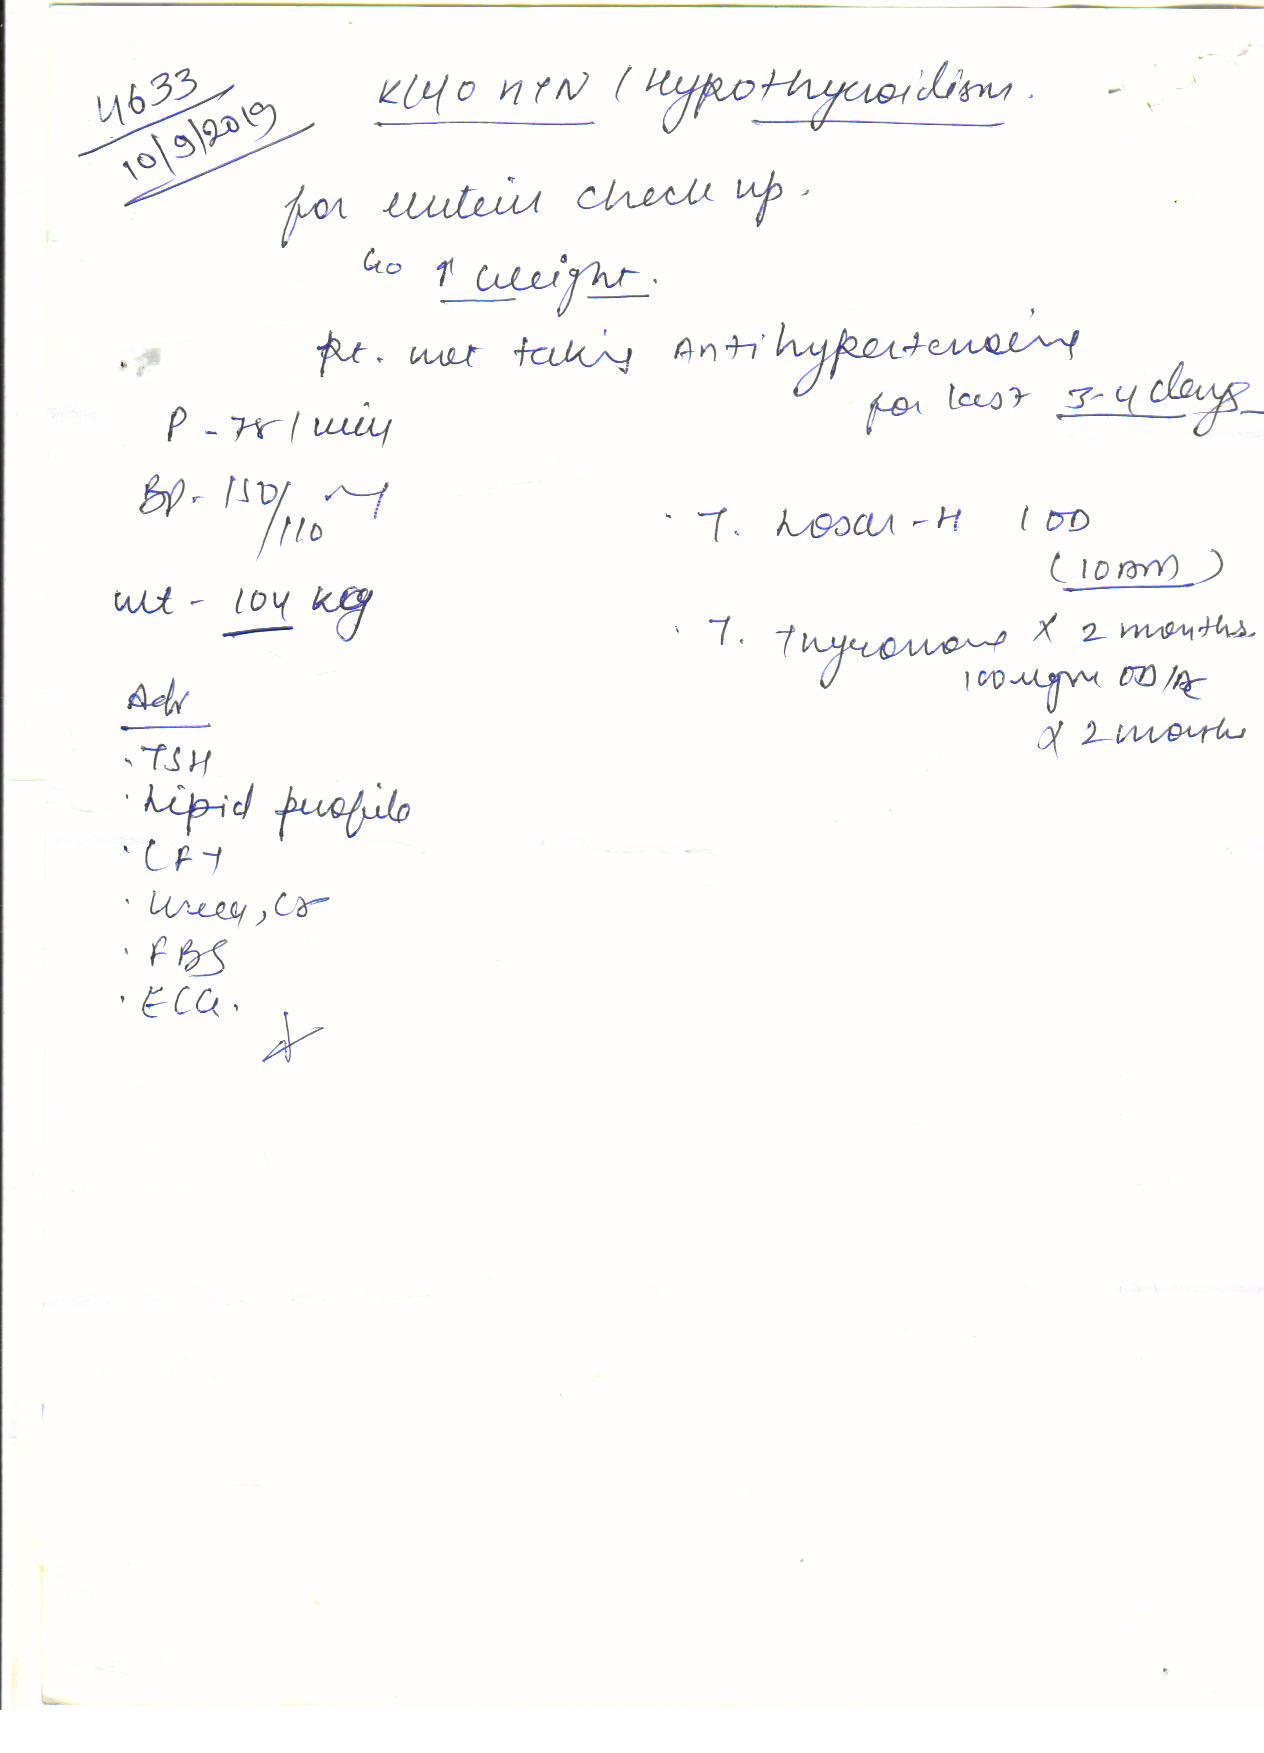 4633
10/9/2019
K/4/0 HTN / Hypothyroidism.
for routein check up.
c/o ↑ weight.
pt. not taking Antihypertensive
for last 3-4 days
P - 78 / min
BP - 150/110
wt - 104 kg
Adv
· TSH
· Lipid profile
· LFT
· Urea, Cr
· FBS
· ECG.
· T. Losar-H 1 OD
(10 AM)
x 2 months.
· T. Thyronorm
100 ugm OD
x 2 months